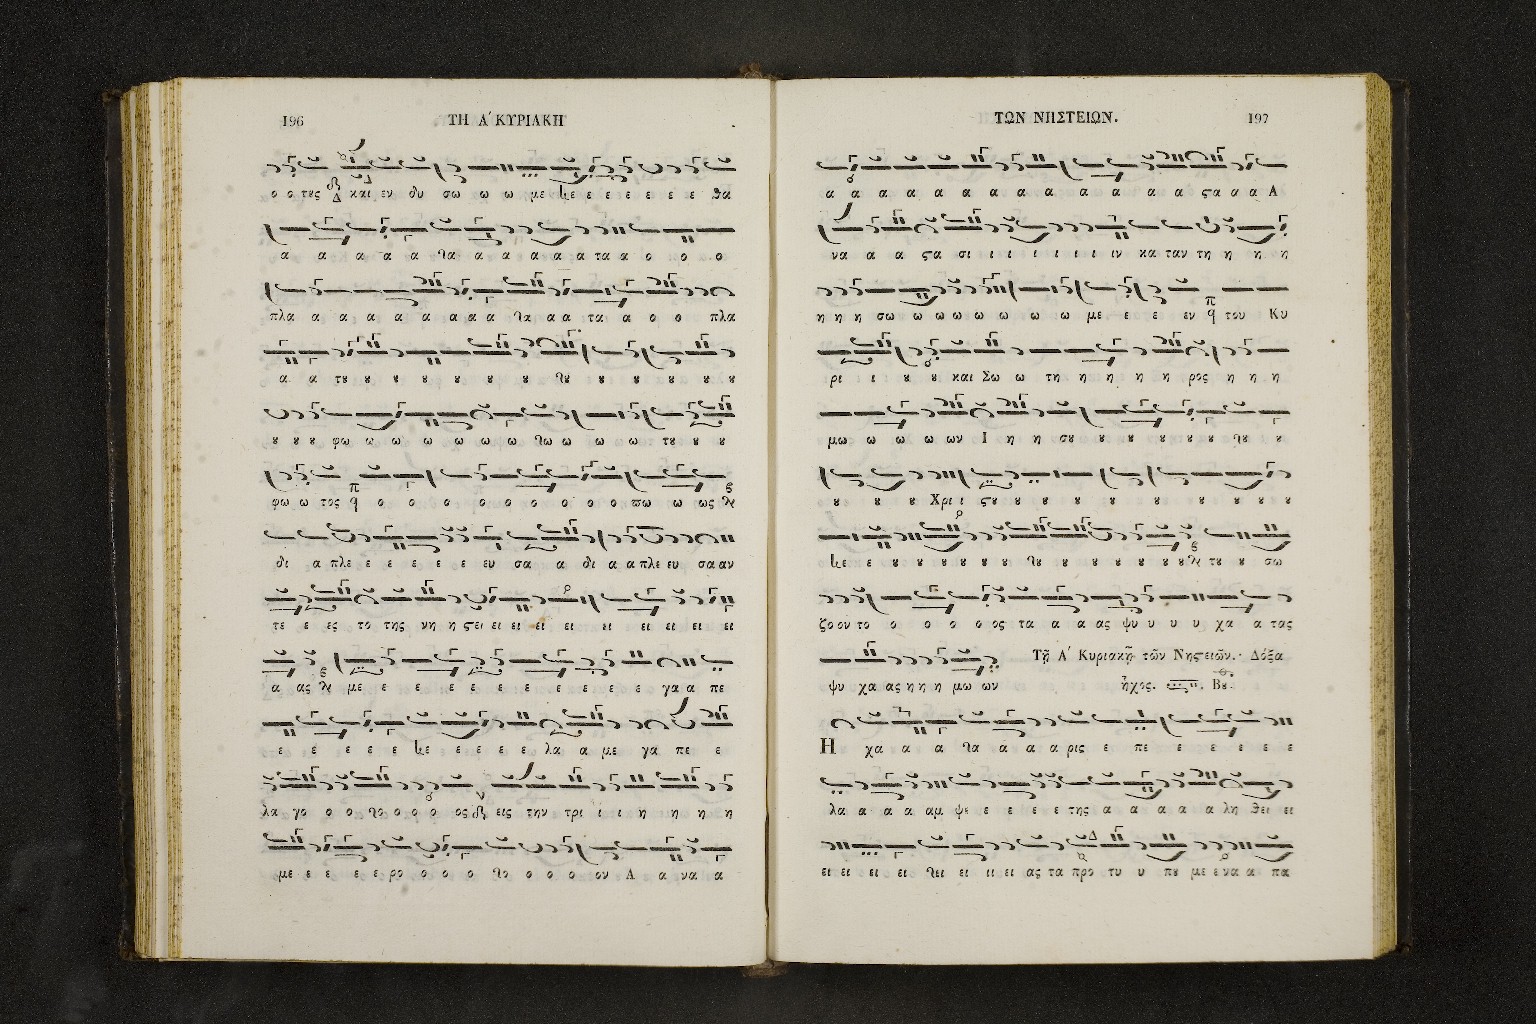 196
ΤΗ Α΄ ΚΥΡΙΑΚΗ
ο ο τȣς Δ και εν δυ σω ω ω με ε ε ε ε ε ε ε θα
α α α α α α α α α α α τα α ο ο ο
πλα α α α α α α α α α α α τα α ο ο πλα
α α τȣ ȣ ȣ ȣ ȣ ȣ ȣ ȣ ȣ ȣ ȣ ȣ ȣ
ȣ ȣ ȣ φω ω ω ω ω ω ω ω ω ω ω τȣ ȣ ȣ
φω ω τος π ο ο ο ο ο ο ο ο ο ϖω ω ως
δι α πλε ε ε ε ε ε ευ σα α δι α α πλε ευ σα αν
τε ε ες το της νη η ϛει ει ει ει ει ει ει ει ει ει
α ας με ε ε ε ε ε ε ε ε ε ε γα α πε
ε ε ε ε ε ε ε ε ε ε λα α με γα πε ε
λα γο ο ο ο ο ο ος εις την τρι ι ι η η η η
με ε ε ε ε ρο ο ο ο ο ο ο ον Α α να α
ΤΩΝ ΝΗΣΤΕΙΩΝ.
197
α α α α α α α α α α α α α ϛα α α Α
να α α ϛα σι ι ι ι ι ι ιν κα ταν τη η η η
η η η σω ω ω ω ω ω ω ω με ε ε εν π του Κυ
ρι ι ȣ ȣ και Σω ω τη η η η η ρος η η η
μω ω ω ω ων Ι η η σȣ ȣ ȣ ȣ ȣ ȣ ȣ
ȣ ȣ ȣ ȣ Χρι ι ϛȣ ȣ ȣ ȣ ȣ ȣ ȣ ȣ ȣ ȣ
ε ε ȣ ȣ ȣ ȣ ȣ ȣ ȣ ȣ ȣ ȣ ȣ ȣ ȣ τȣ ȣ σω
ζο ον το ο ο ο ο ος τα α α ας ψυ υ υ υ χα α τας
ψυ χα ας η η η μω ων
Τῇ Α΄ Κυριακῇ τῶν Νηϛειῶν. Δόξα
ἦχος. Βȣ.
Η χα α α α α α α ρις ε πε ε ε ε ε ε
λα α α α αμ ψε ε ε ε ε της α α α α α λη θει ει
ει ει ει ει ει ει ει ας τα προ τυ υ πȣ με ε να α πα